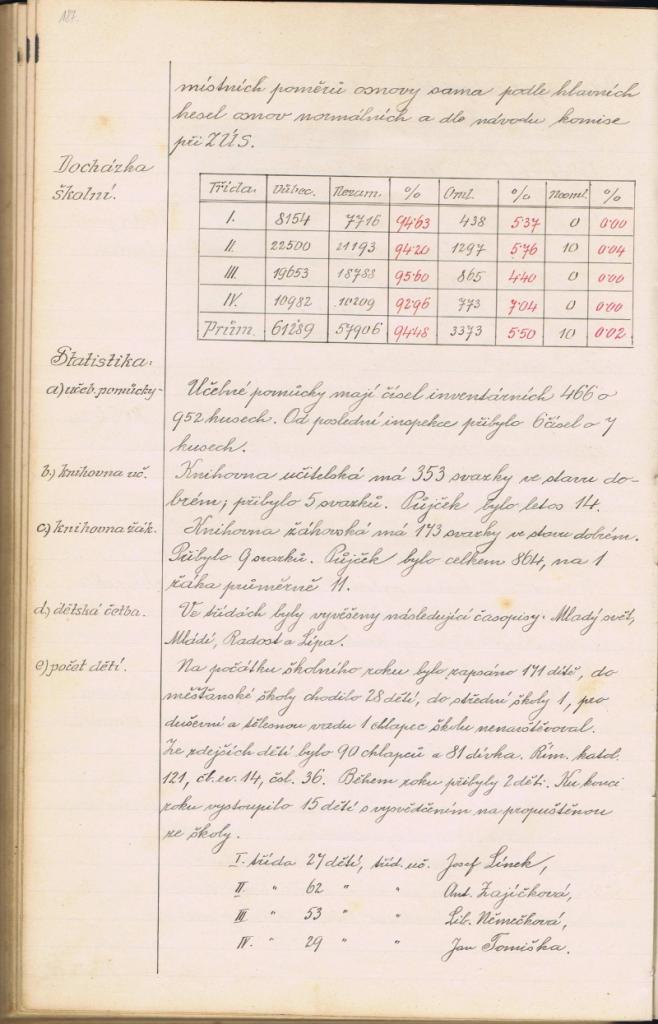 187.
místních poměrů osnovy sama podle hlavních
hesel osnov normálních a dle návodu komise
při ZÚS.
Docházka
školní.
Třída. Vůbec. Nezam. % Oml. % Neoml. %
I. 8154 7716 94·63 438 5·37 0 0·00
II. 22500 21193 94·20 1297 5·76 10 0·04
III. 19653 18788 95·60 865 4·40 0 0·00
IV. 10982 10209 92·96 773 7·04 0 0·00
Prům. 61289 57906 94·48 3373 5·50 10 0·02
Statistika.
a) učeb. pomůcky- Učebné pomůcky mají čísel inventárních 466 o
952 kusech. Od poslední inspekce přibylo 6 čísel o 7
kusech.
b.) knihovna uč. Knihovna učitelská má 353 svazky ve stavu do-
brém; přibylo 5 svazků. Půjček bylo letos 14.
c.) knihovna žák. Knihovna žákovská má 173 svazky ve stavu dobrém.
Přibylo 9 svazků. Půjček bylo celkem 864, na 1
žáka průměrně 11.
d.) dětská četba. Ve třídách byly vyvěšeny následující časopisy: Mladý svět,
Mládí, Radost a Lípa.
e) počet dětí. Na počátku školního roku bylo zapsáno 171 dítě, do
měšťanské školy chodilo 28 dětí, do střední školy 1, pro
duševní a tělesnou vadu 1 chlapec školu nenavštěvoval.
Ze zdejších dětí bylo 90 chlapců a 81 dívka. Řím. katol.
121, čl. ev. 14, čsl. 36. Během roku přibyly 2 děti. Ku konci
roku vystoupilo 15 dětí s vysvědčením na propuštěnou
ze školy.
I. třída 27 dětí, tříd. uč. Josef Línek,
II. " 62 " " Ant. Zajíčková,
III. " 53 " " Lib. Němečková,
IV. " 29 " " Jan Tomiška.